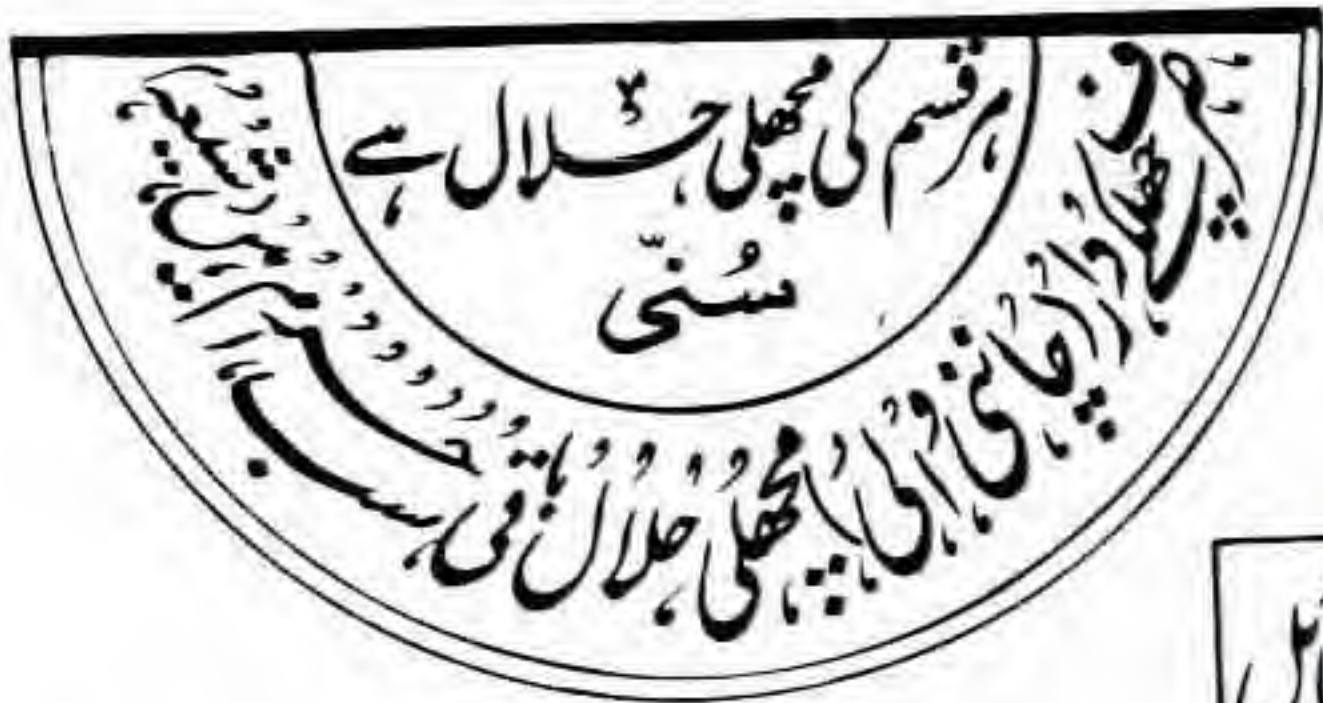 ہر قسم کی مچھلی حلال ہے
سُنّی
صرف چھلکے دار چاننی والی مچھلی حلال باقی سب حرام ہیں شیعہ